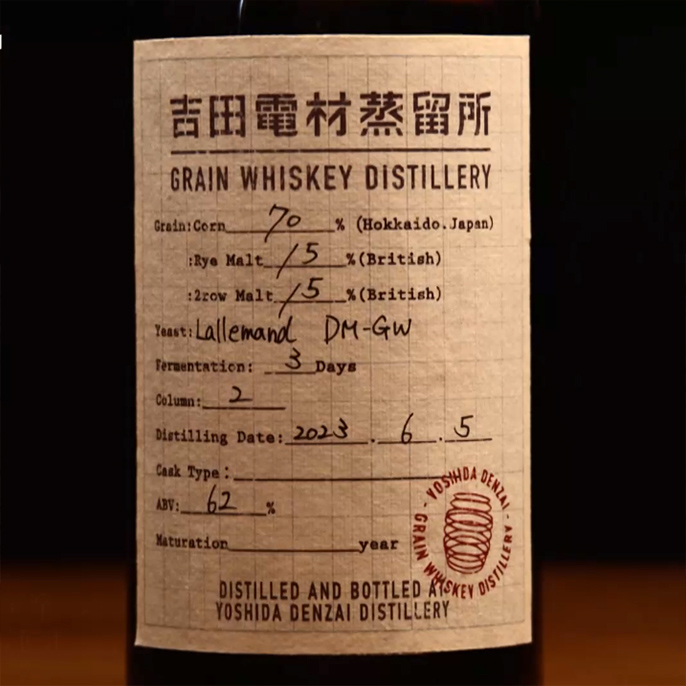 吉田電材蒸留所
GRAIN WHISKEY DiSTILLERY
Grain:Corn 70 % (Hokkaido.Japan)
:Rye Malt 15 %(British)
:2row Malt 15 %(British)
Yeast: Lallemand DM-GW
Fermentation: 3 Days
Column: 2
Distilling Date: 2023 . 6 . 5
Cask Type:
ABV: 62 %
Maturation year
YOSHIDA DENZAI
GRAIN WHISKEY DISTILLERY
DISTILLED AND BOTTLED AT
YOSHIDA DENZAI DISTILLERY